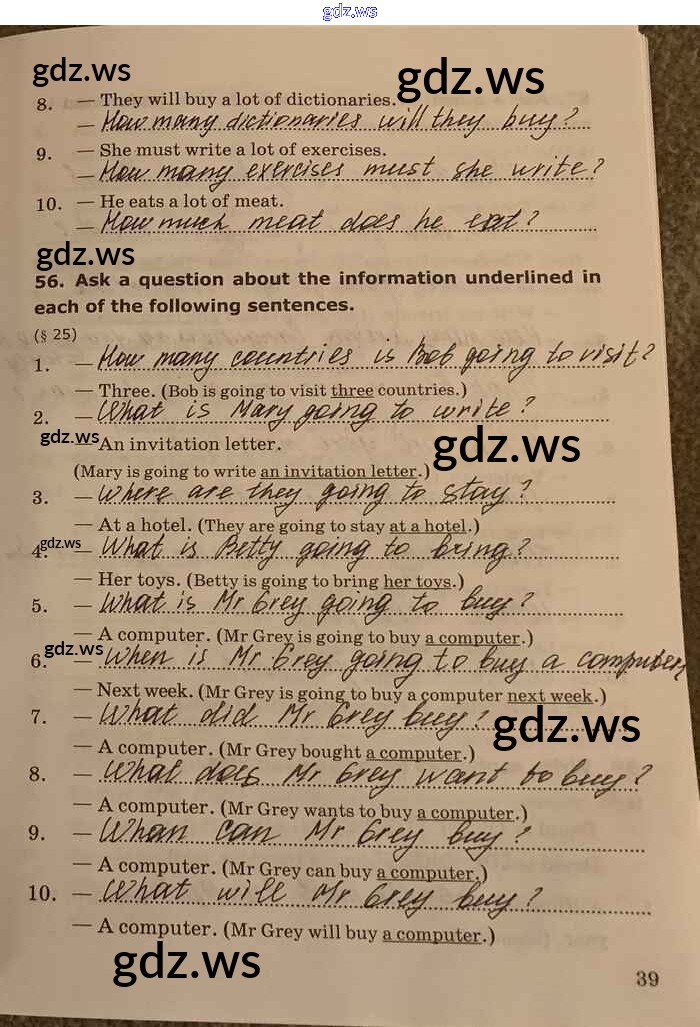 gdz.ws
gdz.ws
gdz.ws
8. — They will buy a lot of dictionaries.
— How many dictionaries will they buy?
9. — She must write a lot of exercises.
— How many exercises must she write?
10. — He eats a lot of meat.
— How much meat does he eat?
gdz.ws
56. Ask a question about the information underlined in
each of the following sentences.
(§ 25)
1. — How many countries is Bob going to visit?
— Three. (Bob is going to visit three countries.)
2. — What is Mary going to write?
gdz.ws
— An invitation letter.
gdz.ws
(Mary is going to write an invitation letter.)
3. — Where are they going to stay?
— At a hotel. (They are going to stay at a hotel.)
gdz.ws
4. — What is Betty going to bring?
— Her toys. (Betty is going to bring her toys.)
5. — What is Mr Grey going to buy?
— A computer. (Mr Grey is going to buy a computer.)
gdz.ws
6. — When is Mr Grey going to buy a computer?
— Next week. (Mr Grey is going to buy a computer next week.)
7. — What did Mr Grey buy?
gdz.ws
— A computer. (Mr Grey bought a computer.)
8. — What does Mr Grey want to buy?
— A computer. (Mr Grey wants to buy a computer.)
9. — Whan can Mr Grey buy?
— A computer. (Mr Grey can buy a computer.)
10. — What will Mr Grey buy?
— A computer. (Mr Grey will buy a computer.)
gdz.ws
39